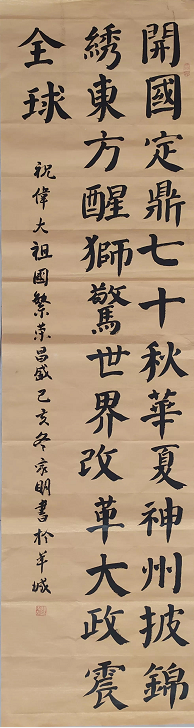 開國定鼎七十秋華夏神州披錦
綉東方醒獅驚世界改革大政震
全球
祝偉大祖國繁荣昌盛己亥冬家明書於羊城